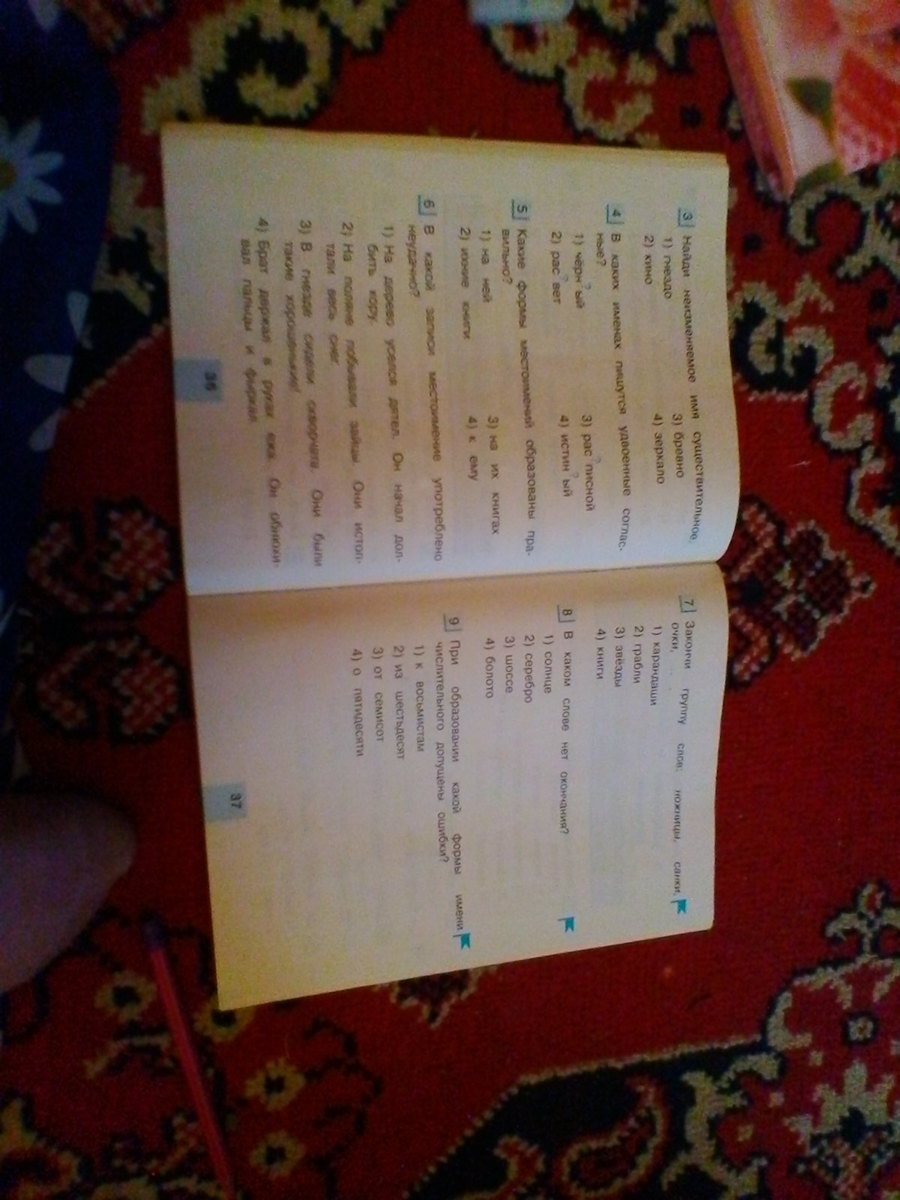 3 Найди неизменяемое имя существительное.
1) гнездо 3) бревно
2) кино 4) зеркало
4 В каких именах пишутся удвоенные соглас-
ные?
1) чёрн?ый 3) рас?писной
2) рас?вет 4) истин?ый
5 Какие формы местоимений образованы пра-
вильно?
1) на ней 3) на их книгах
2) ихние книги 4) к ему
6 В какой записи местоимение употреблено
неудачно?
1) На дерево уселся дятел. Он начал дол-
бить кору.
2) На поляне побывали зайцы. Они истоп-
тали весь снег.
3) В гнезде сидели скворчата. Они были
такие хорошенькие!
4) Брат держал в руках ежа. Он обнюхи-
вал пальцы и фыркал.
36
7 Закончи группу слов: ножницы, санки,
очки, ...
1) карандаши
2) грабли
3) звёзды
4) книги
8 В каком слове нет окончания?
1) солнце
2) серебро
3) шоссе
4) болото
9 При образовании какой формы имени
числительного допущены ошибки?
1) к восьмистам
2) из шестьдесят
3) от семисот
4) о пятидесяти
37